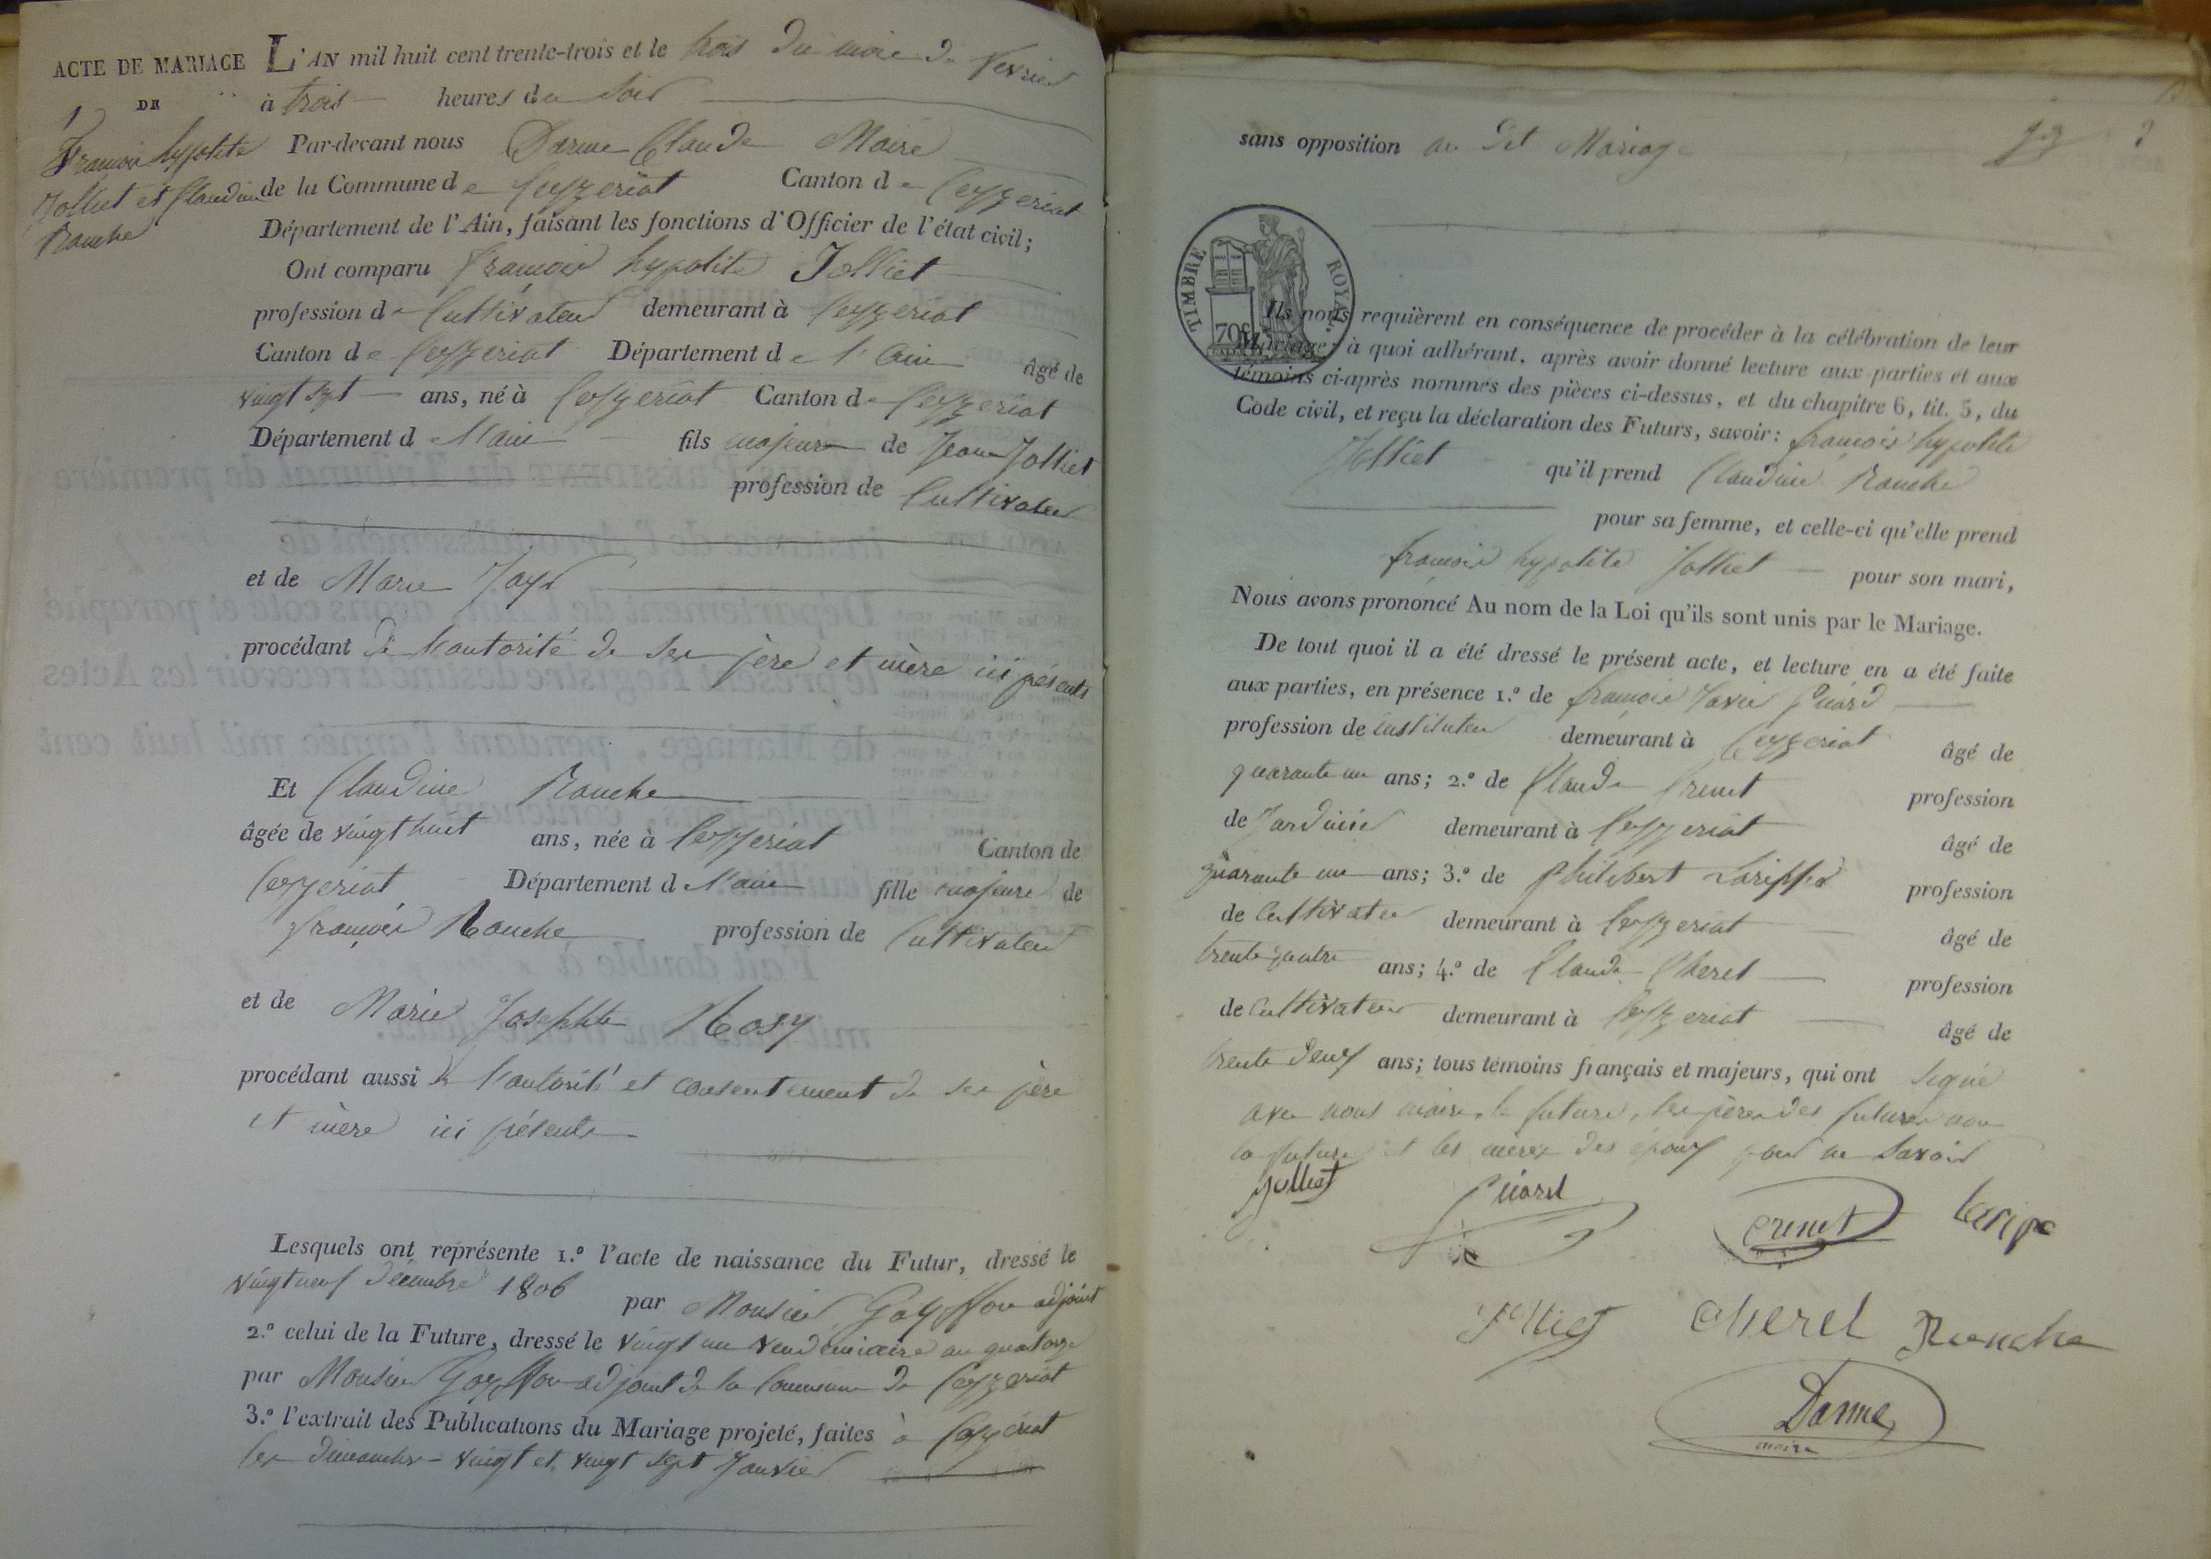 ACTE DE MARIAGE
DE
1
François hypolite
Jolliet et Claudine
Ranche
L'AN mil huit cent trente-trois et le trois du mois de fevrier
à trois heures du soir
Par-devant nous Darme Claude Maire
de la Commune de Ceyzeriat Canton de Ceyzeriat
Département de l'Ain, faisant les fonctions d'Officier de l'état civil;
Ont comparu françois hypolite Jolliet
profession de Cultivateur demeurant à Ceyzeriat
Canton de Ceyzeriat Département de l'ain âgé de
vingt sept ans, né à Ceyzeriat Canton de Ceyzeriat
Département de l'ain fils majeur de Jean Jolliet
profession de Cultivateur
et de Marie
procédant de l'autorité de ses père et mère ici présents
Et Claudine Ranche
âgée de vingt huit ans, née à Ceyzeriat Canton de
Ceyzeriat Département de l'ain fille majeure de
françois Ranche profession de Cultivateur
et de Marie Josephte Rosy
procédant aussi de l'autorité et consentement de ses père
et mère ici présents
Lesquels ont représenté 1.º l'acte de naissance du Futur, dressé le
vingt neuf décembre 1806 par Monsieur Goyffon adjoint
2.º celui de la Future, dressé le vingt un vendemiaire an quatorze
par Monsieur Goyffon adjoint de la Commune de Ceyzeriat
3.º l'extrait des Publications du Mariage projeté, faites à Ceyzeriat
les dimanches vingt et vingt sept Janvier
sans opposition au dit Mariage
TIMBRE ROYAL
70c
Ils nous requièrent en conséquence de procéder à la célébration de leur
Mariage; à quoi adhérant, après avoir donné lecture aux parties et aux
témoins ci-après nommés des pièces ci-dessus, et du chapitre 6, tit. 5, du
Code civil, et reçu la déclaration des Futurs, savoir: françois hypolite
Jolliet qu'il prend Claudine Ranche
pour sa femme, et celle-ci qu'elle prend
françois hypolite Jolliet pour son mari,
Nous avons prononcé Au nom de la Loi qu'ils sont unis par le Mariage.
De tout quoi il a été dressé le présent acte, et lecture en a été faite
aux parties, en présence 1.º de françois Xavier Picard
profession de instituteur demeurant à Ceyzeriat âgé de
quarante un ans; 2.º de Claude Crenet profession
de Jardinier demeurant à Ceyzeriat âgé de
quarante un ans; 3.º de Philibert Larippe profession
de Cultivateur demeurant à Ceyzeriat âgé de
trente quatre ans; 4.º de Claude Cherel profession
de Cultivateur demeurant à Ceyzeriat âgé de
trente deux ans; tous témoins français et majeurs, qui ont signé
avec nous maire, le futur, les pères des futurs non
la future et les mères des époux pour ne savoir
Jolliet Picard Crenet Laripe
Jolliet Cherel Ranche
Darme
maire